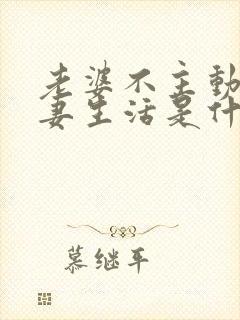 老婆不主动
妻生活是什
慕继平